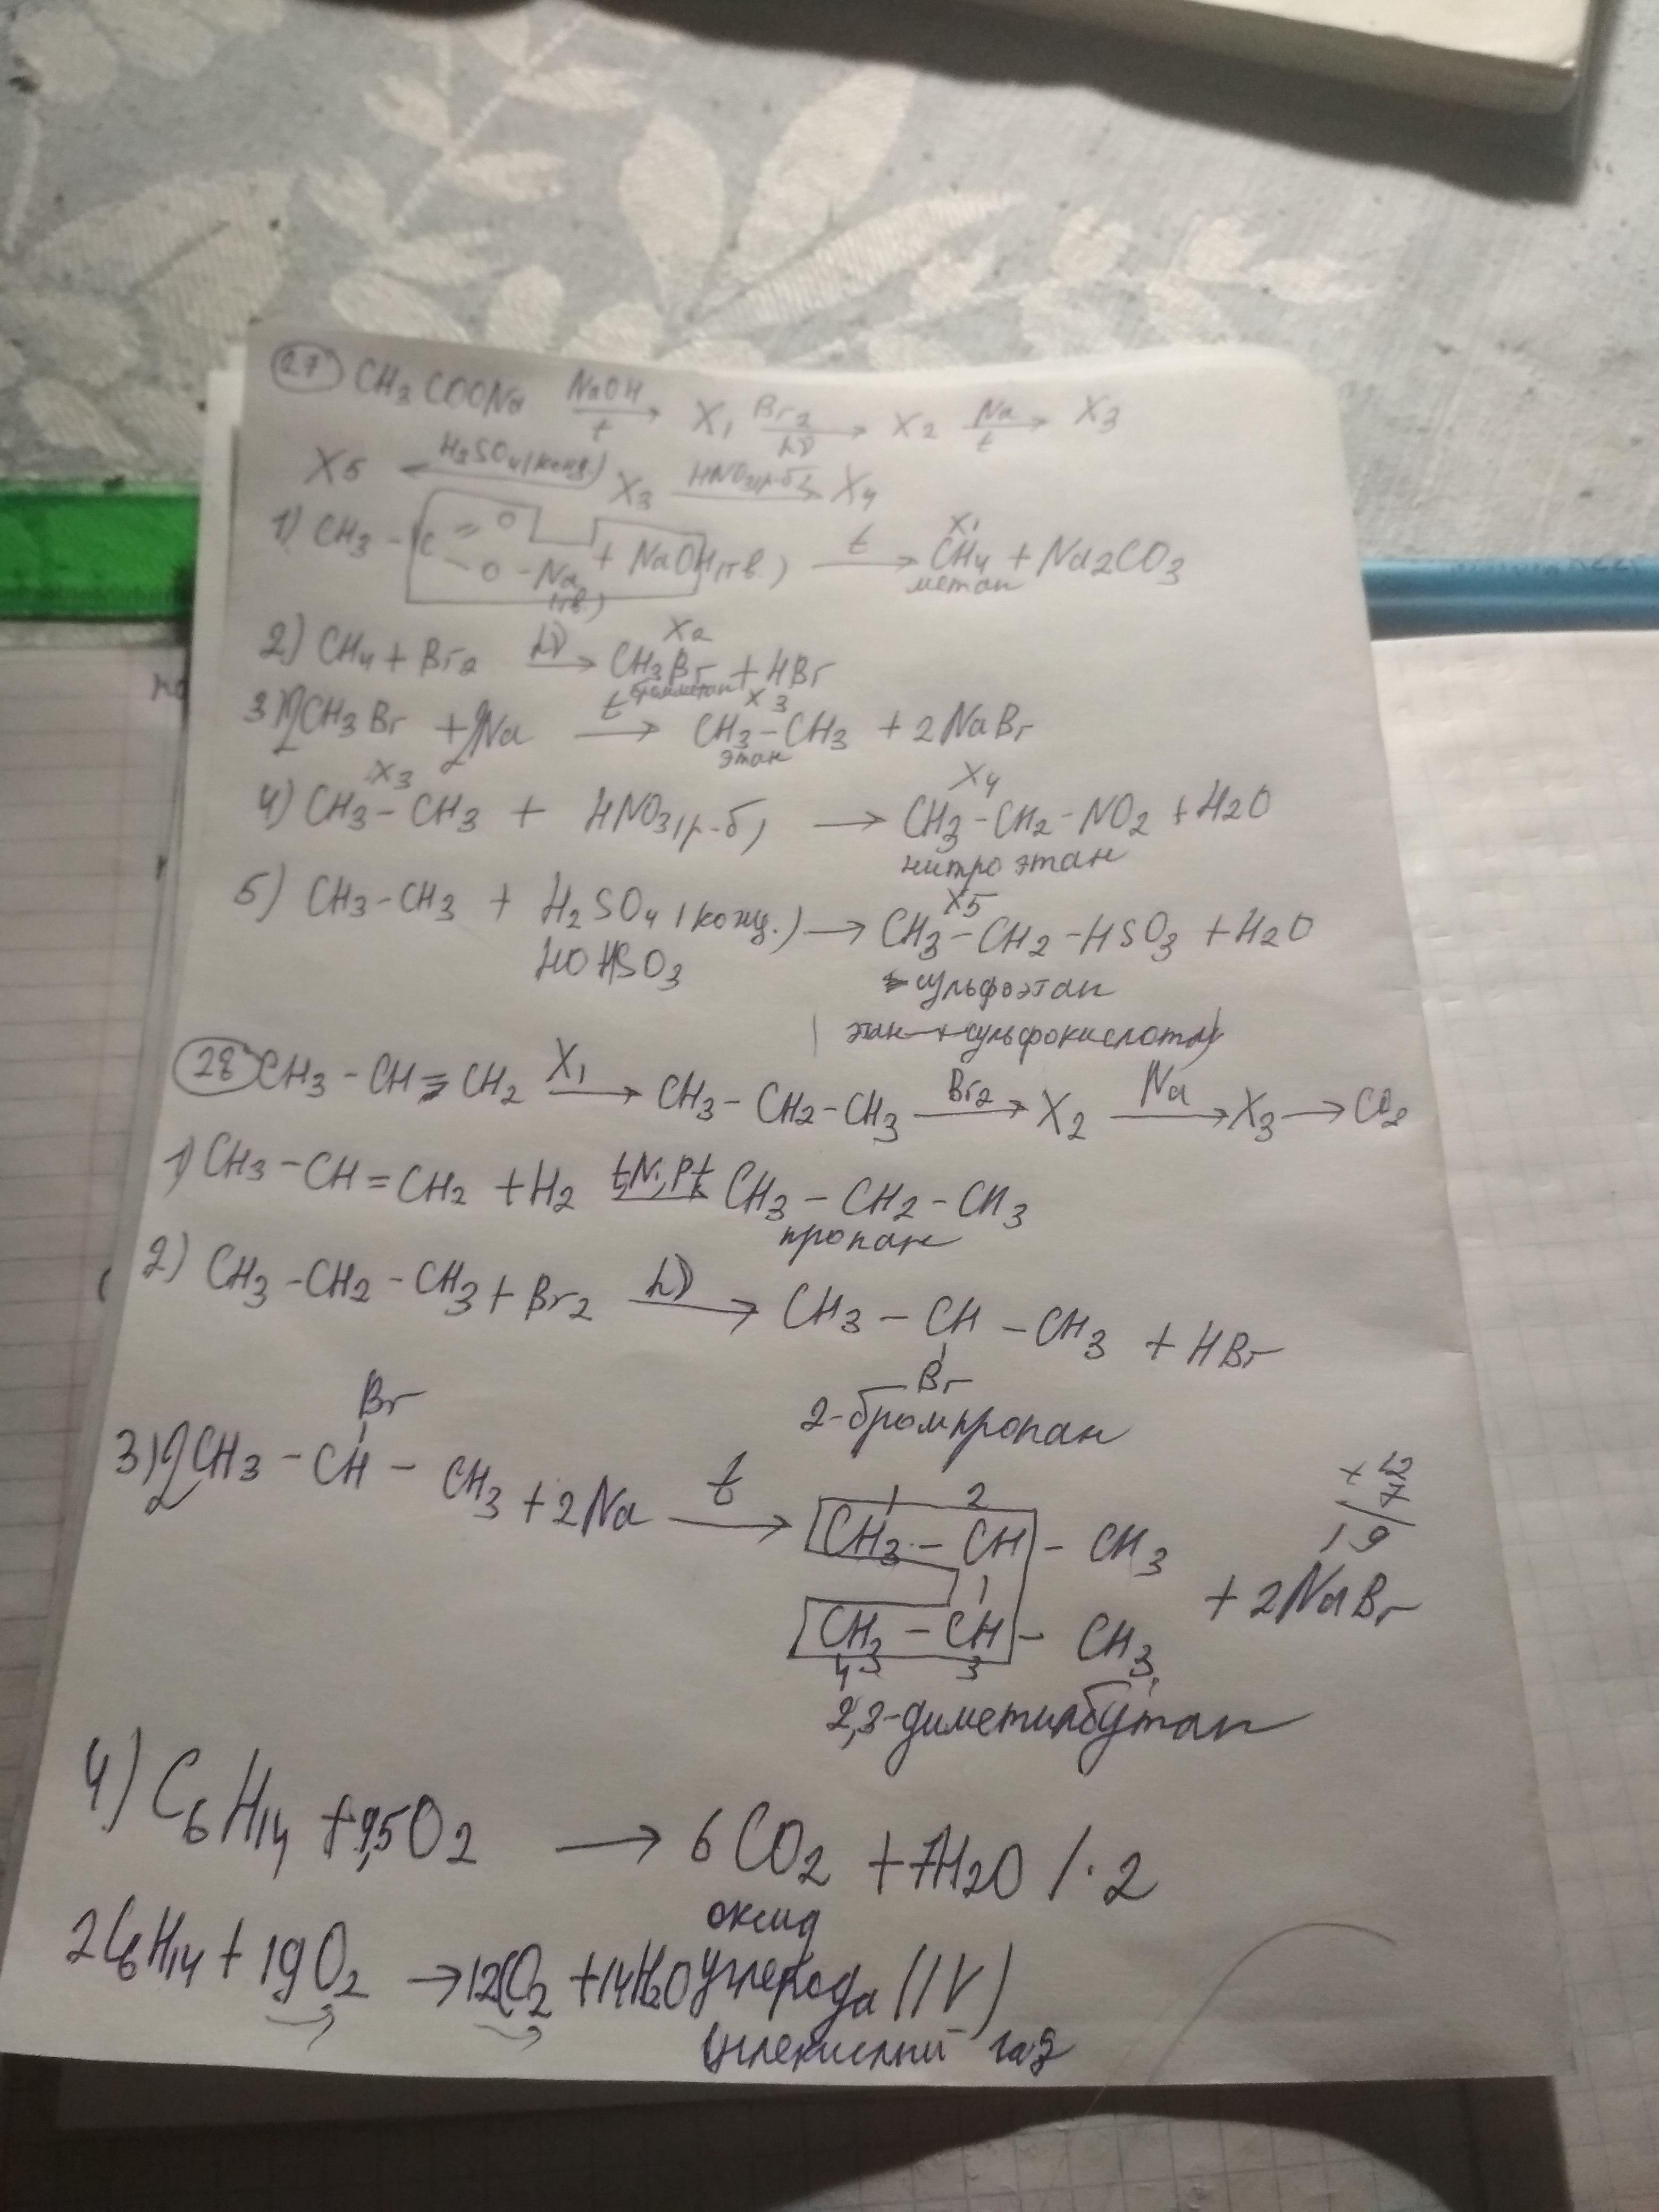 27 CH3COONa NaOH/t → X1 Br2/hν → X2 Na/t → X3
X5 ← H2SO4(конц.) X3 HNO3(р-б) → X4
1) CH3-C=O O-Na(тв) + NaOH(тв.) t → X1 CH4 + Na2CO3
метан
2) CH4 + Br2 hν → X2 CH3Br + HBr
бромметан
3) 2CH3Br + 2Na t → X3 CH3-CH3 + 2NaBr
этан
4) X3 CH3-CH3 + HNO3(р-б) → X4 CH3-CH2-NO2 + H2O
нитроэтан
5) CH3-CH3 + H2SO4(конц.) → X5 CH3-CH2-HSO3 + H2O
HOHSO3
сульфоэтан
этан сульфокислота
28 CH3-CH=CH2 X1 → CH3-CH2-CH3 Br2 → X2 Na → X3 → CO2
1) CH3-CH=CH2 + H2 t,Ni,Pt → CH3-CH2-CH3
пропан
2) CH3-CH2-CH3 + Br2 hν → CH3-CH-CH3 + HBr
Br
2-бромпропан
Br
3) 2CH3-CH-CH3 + 2Na t → CH3-CH-CH3
1 2
+ 12
7
19
+ 2NaBr
CH3-CH-CH3
4 3
2,3-диметилбутан
4) C6H14 + 9,5O2 → 6CO2 + 7H2O /·2
оксид
2C6H14 + 19O2 → 12CO2 + 14H2O углерода (IV)
углекислый газ